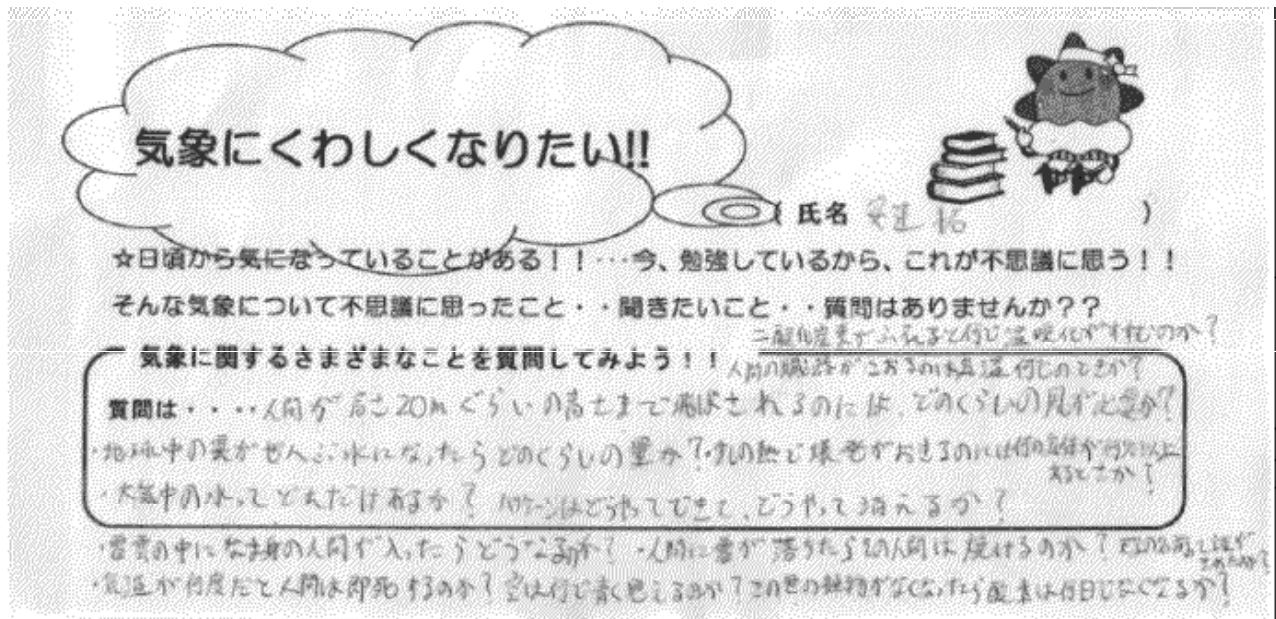 気象にくわしくなりたい!!
( 氏名 )
☆日頃から気になっていることがある！！・・・今、勉強しているから、これが不思議に思う！！
そんな気象について不思議に思ったこと・・聞きたいこと・・質問はありませんか？？
二酸化炭素がふえると何で温暖化がすすむのか？
気象に関するさまざまなことを質問してみよう！！
人間の がこおるのは気温何℃のときか？
質問は・・・・人間が高さ20mぐらいの高さまで飛ばされるのには、どのくらいの風が必要か？
・地球中の雲がぜんぶ水になったらどのくらいの量か？・ の熱で爆発がおきるのには何の気体が何%以上
あるときか？
・大気中の水ってどれだけあるか？ ハリケーンはどうやってできて、どうやって消えるか？
・雷雲の中になま身の人間が入ったらどうなるのか？ ・人間に雷が落ちたらその人間は焼けるのか？
・気温が何度だと人間は即死するのか？空は何で青く見えるのか？この世の植物がなくなったら酸素は何日でなくなるか？